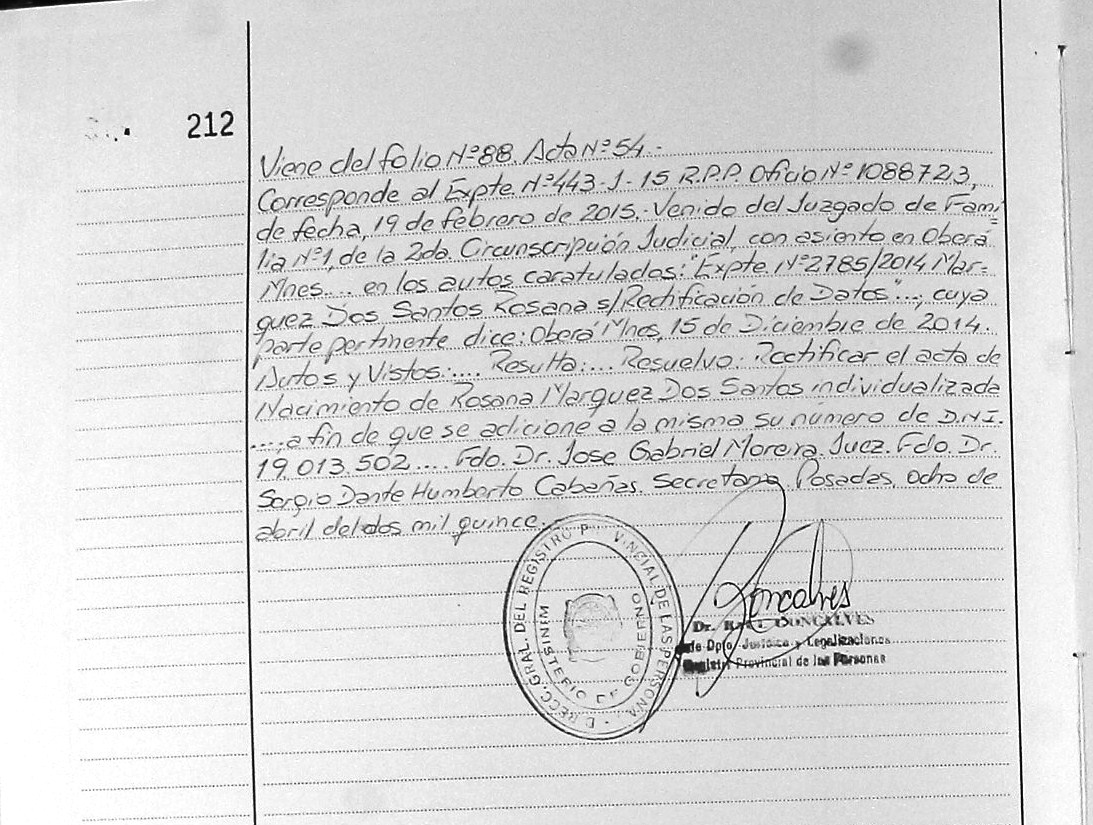 212
Viene del folio Nº 88. Acta Nº 54.-
Corresponde al Expte Nº 443-J-15 R.P.P. Oficio Nº 1088723,
de fecha, 19 de febrero de 2015. Venido del Juzgado de Fami=
lia Nº1, de la 2da. Circunscripción Judicial, con asiento en Oberá
Mnes.... en los autos caratulados: "Expte. Nº 2785/2014 Mar=
quez Dos Santos Rosana s/Rectificación de Datos"..., cuya
parte pertinente dice: Oberá Mnes, 15 de Diciembre de 2014.
Autos y Vistos:.... Resulta:... Resuelvo: Rectificar el acta de
Nacimiento de Rosana Marquez Dos Santos individualizada
...., a fin de que se adicione a la misma su número de D.N.I.
19.013.502.... Fdo. Dr. Jose Gabriel Moreira. Juez. Fdo. Dr.
Sergio Dante Humberto Cabañas. Secretario. Posadas, ocho de
abril del dos mil quince.
RECC. GRAL. DEL REGISTRO P VINCIAL DE LAS PERSONA
MINISTERIO DE GOBIERNO
Goncalves
Dr. GONCALVES
Dpto. Jurídica y Legalizaciones
Provincial de las Personas